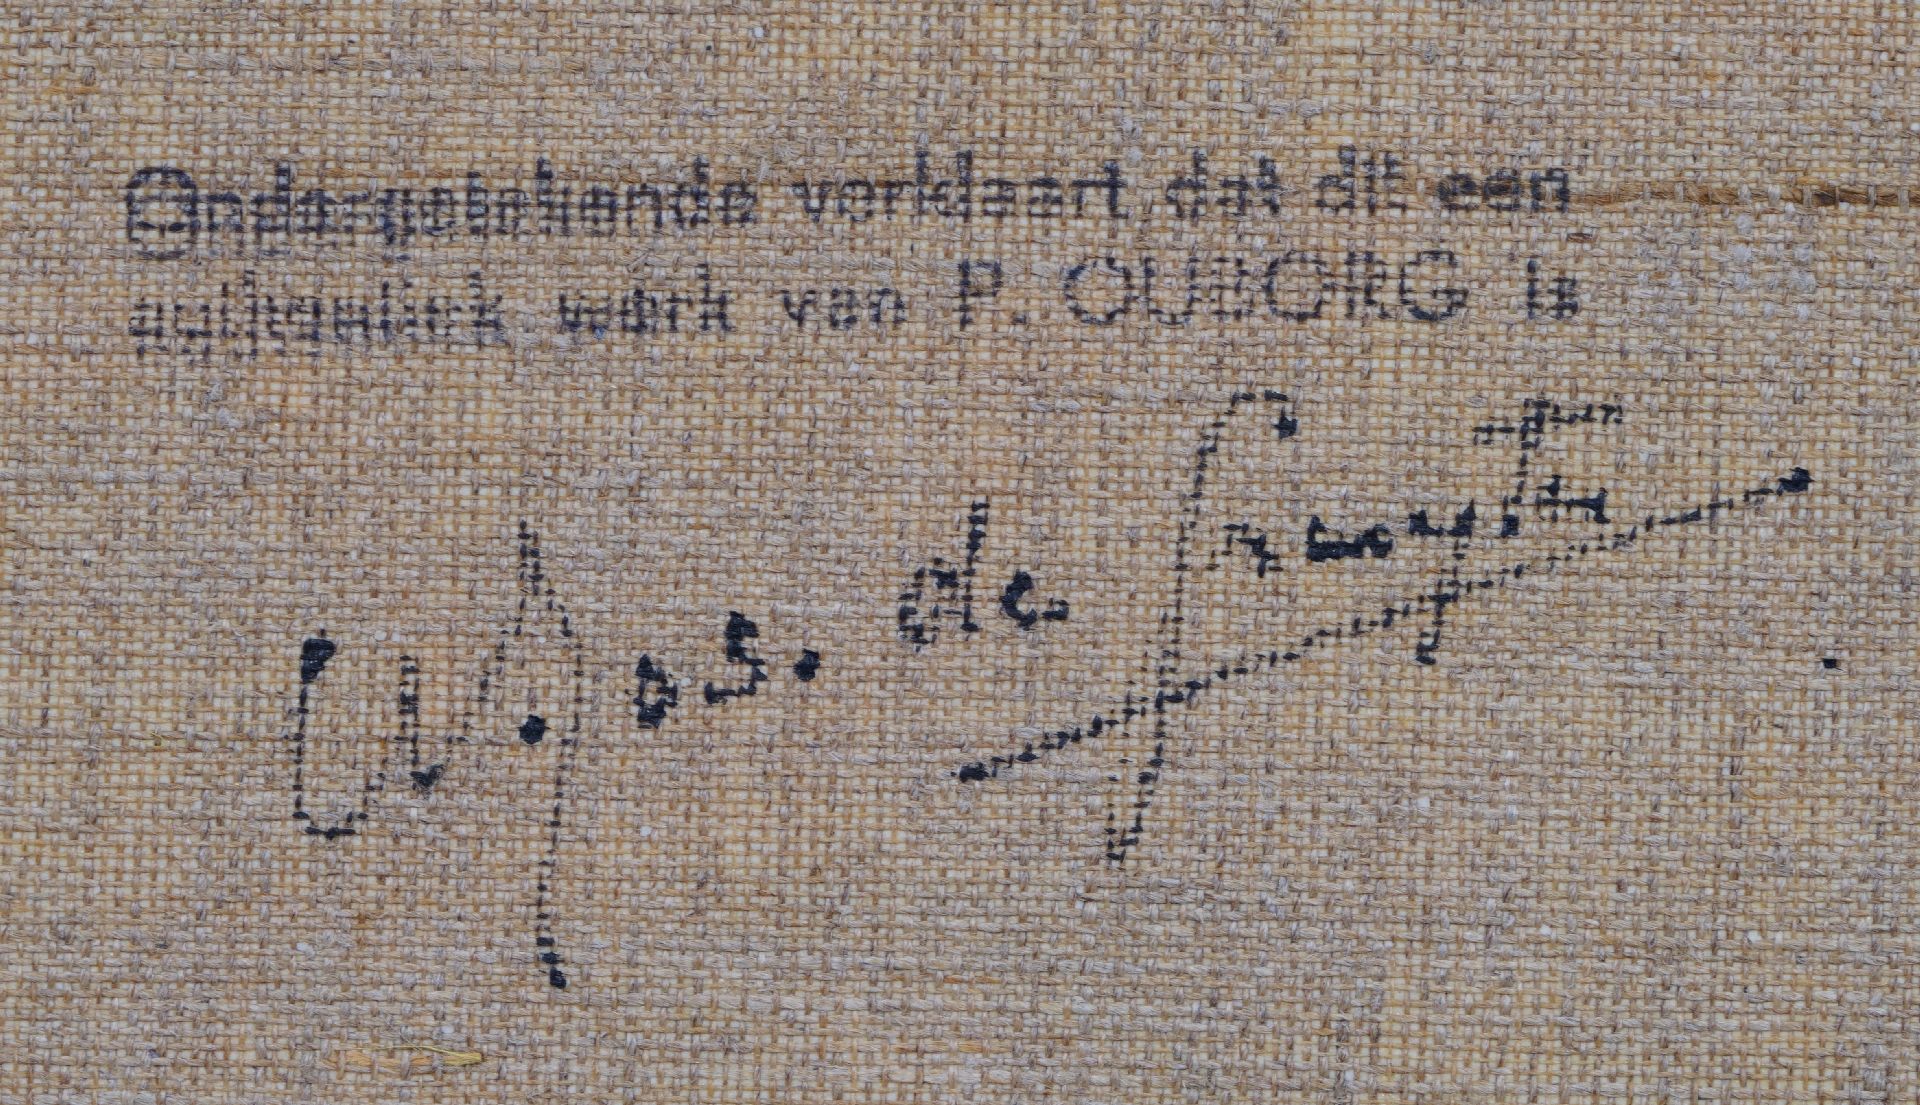 Ondergetekende verklaart dat dit een
authentiek werk van P. OUBORG is
de